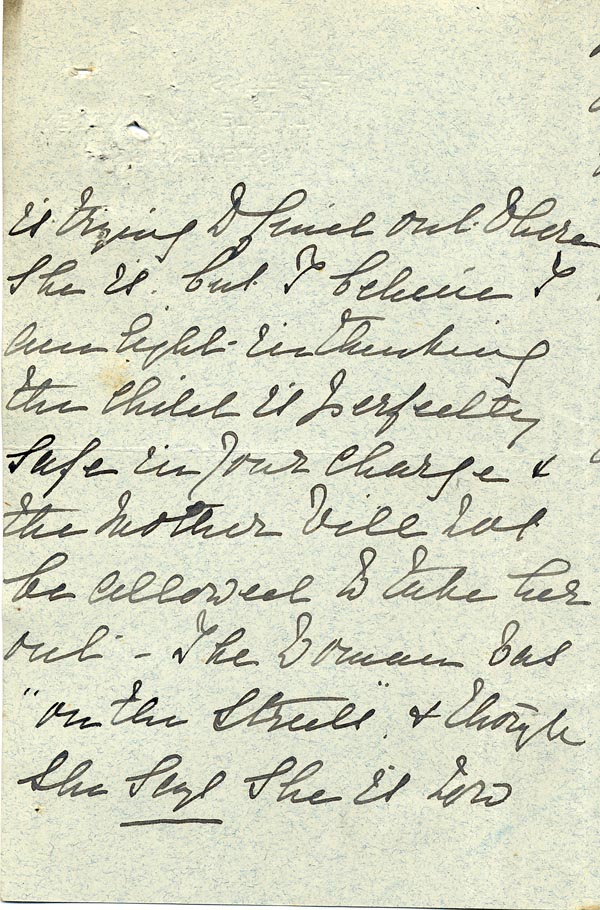 is trying to find out where
she is. but I believe I
am right in thinking
the child is perfectly
safe in your charge &
the mother will not
be allowed to take her
out - The woman was
"on the streets" & though
she says she is now